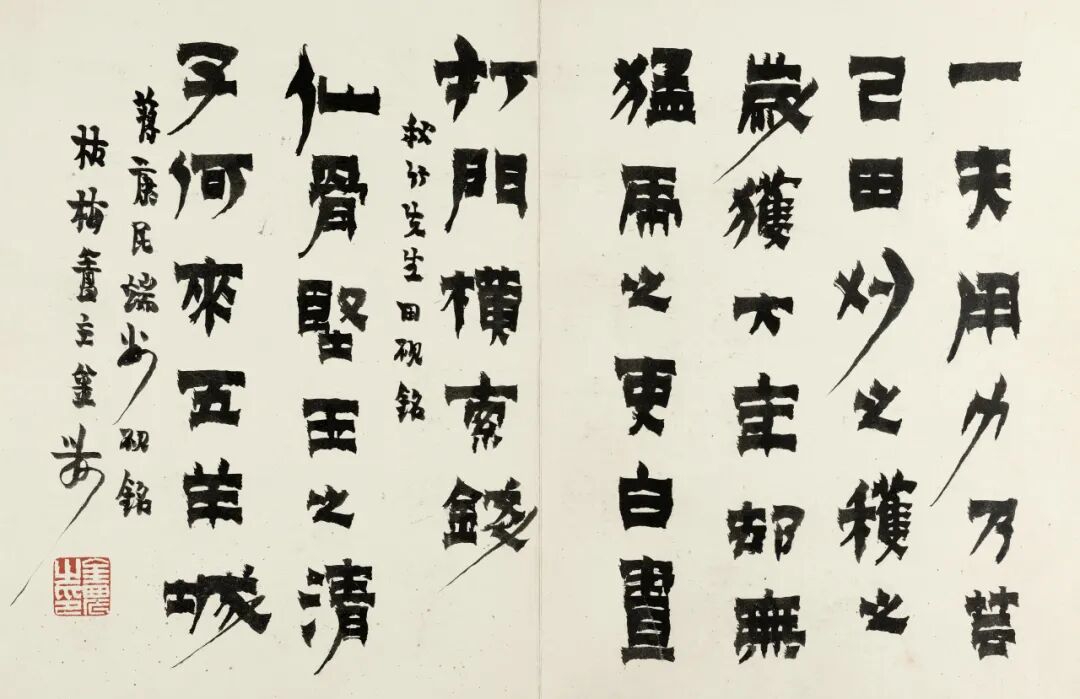 一夫用力乃芸
己田之穫之
歲獲大年却無
猛虎之吏白晝
打門橫索錢
秋竹先生田硯銘
仙骨堅玉之清
子何來五羊城
蔣康民端州硯銘
枯梅盦主金農